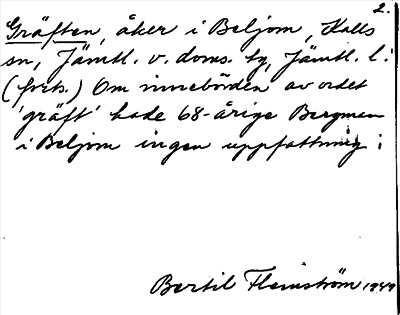 2.
Gräften, åker i Beljom, Kalls
sn, Jämtl. v. doms. tg, Jämtl. l:
(forts.) Om innebörden av ordet
'gräft' hade 68-årige Bergman
i Beljom ingen uppfattning:
Bertil Flemström 1949